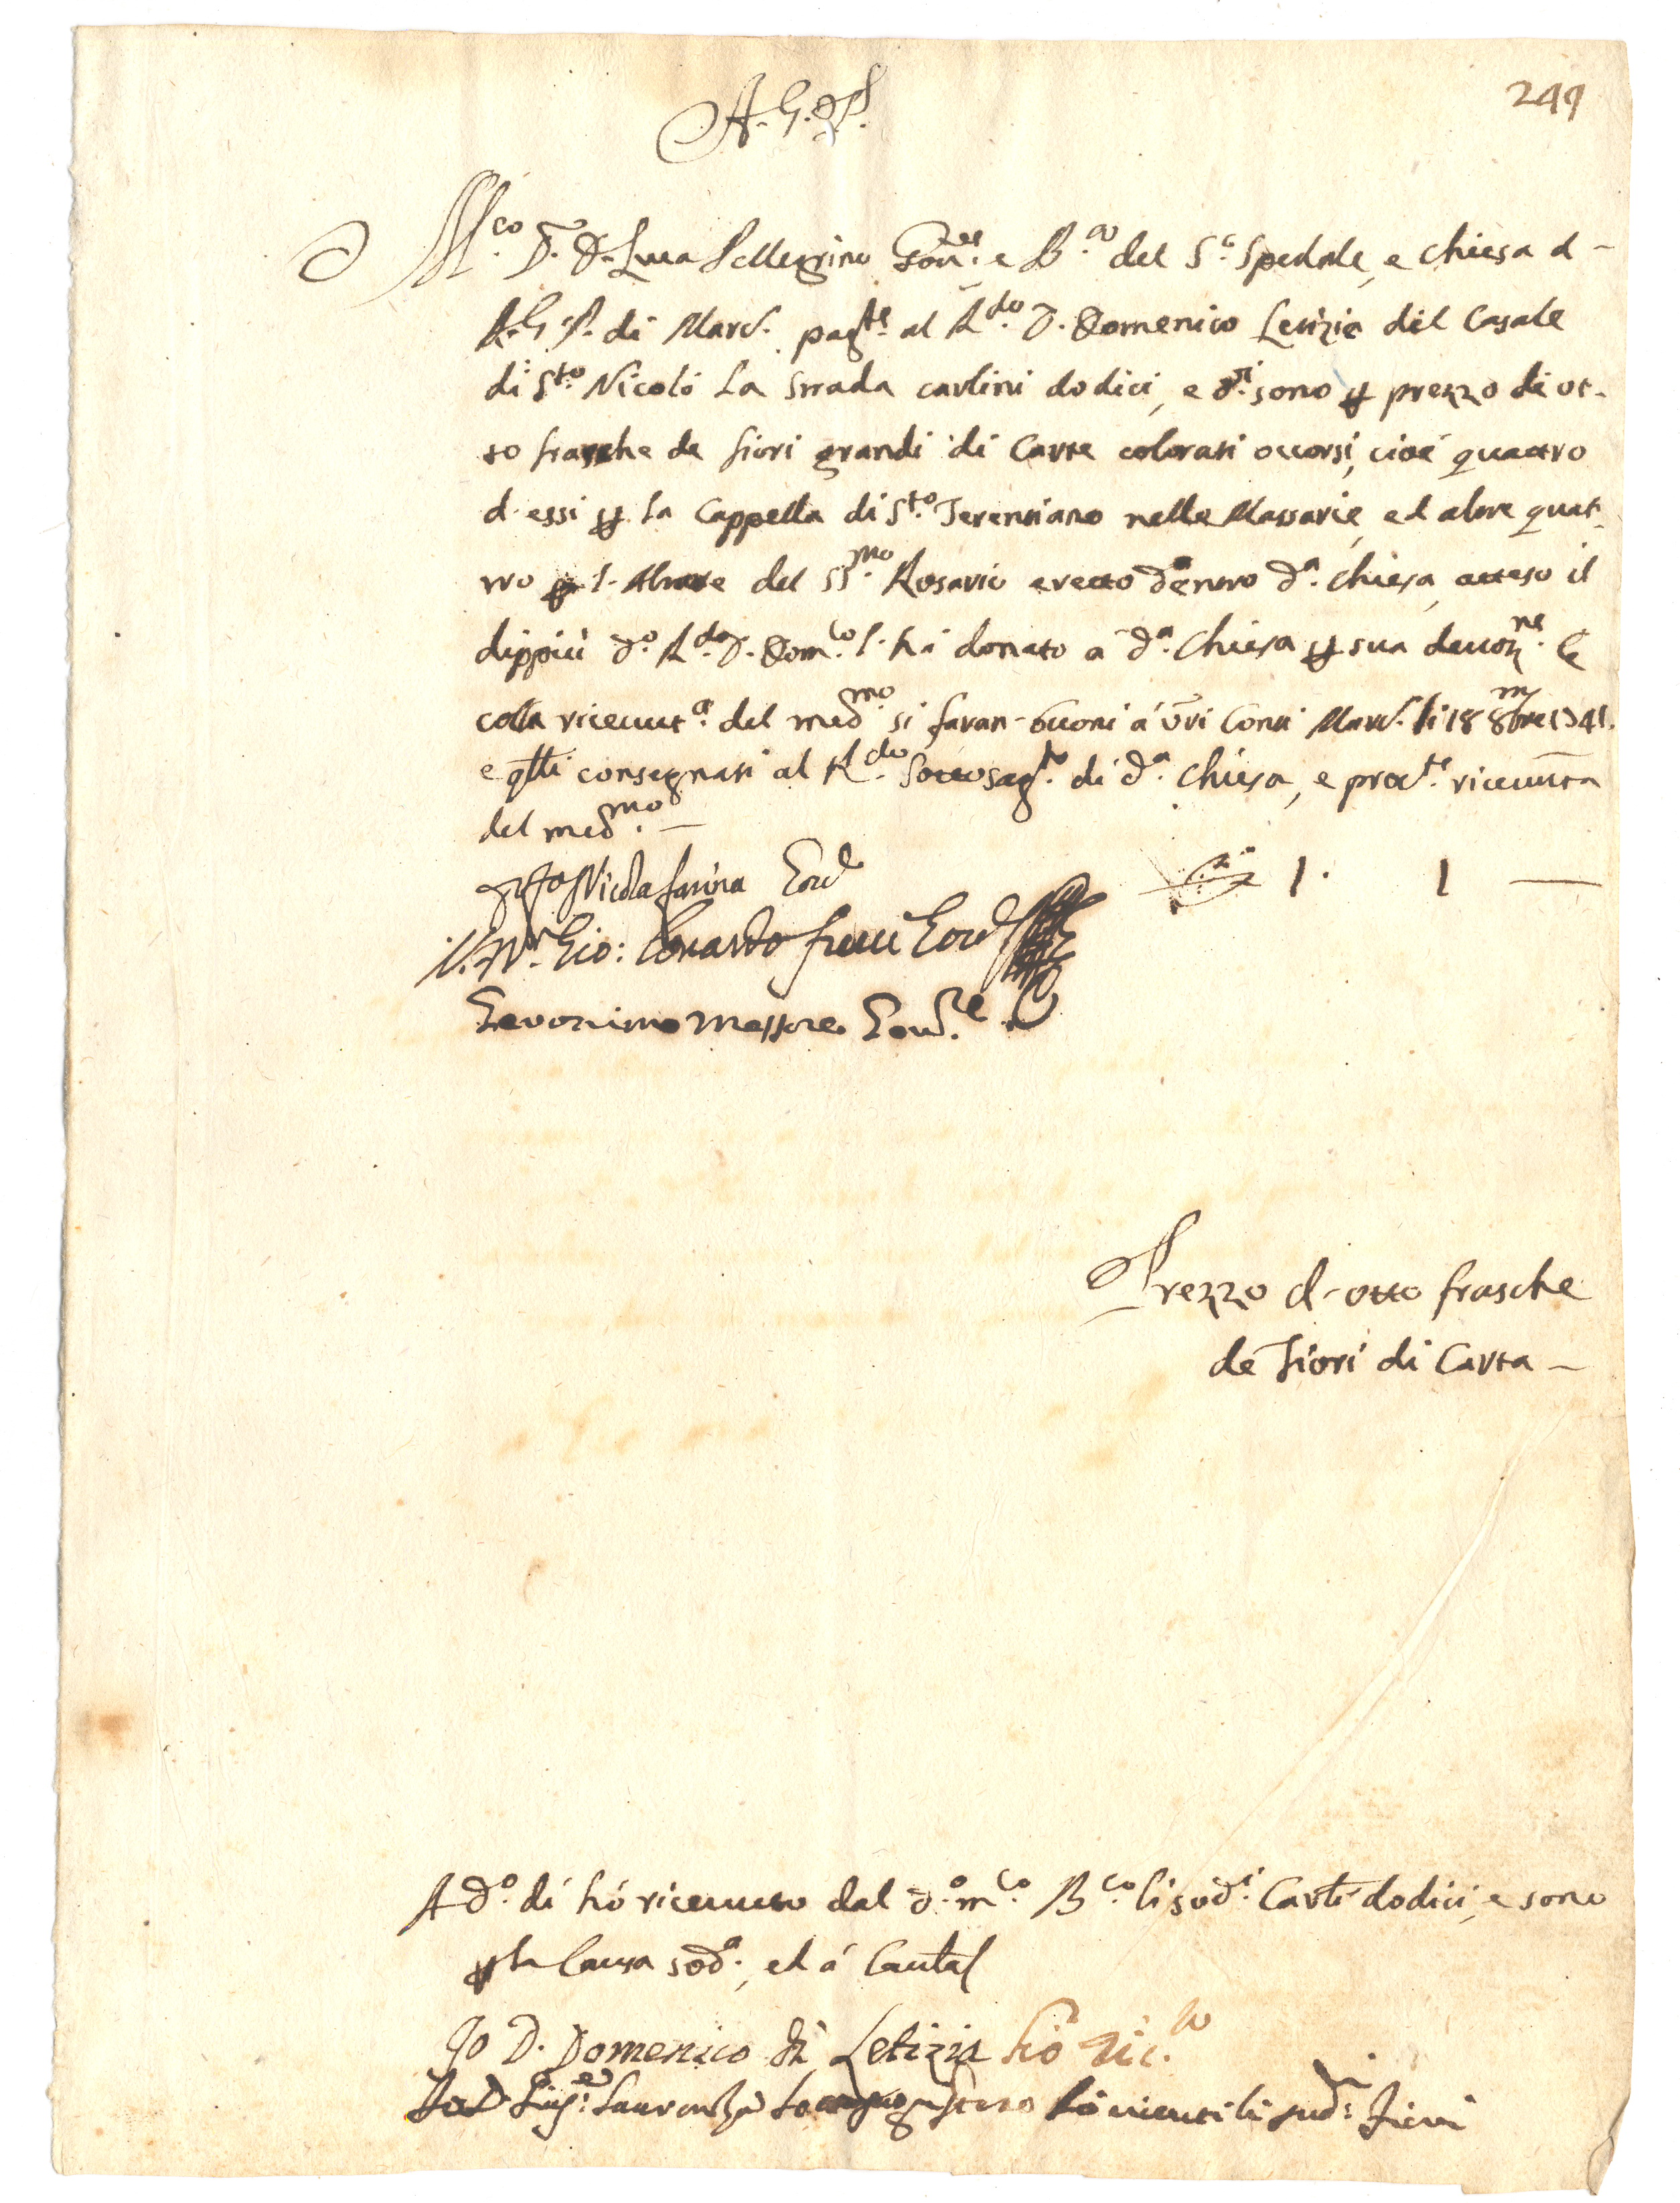 249
A. G. P.
M.co D. D. Luca Pellegrino Gov.re e B.co del S.o Spedale, e Chiesa d-
A. G. P. di Marc.e pag.te al R.do D. Domenico Letizia del Casale
di S.to Nicolò La Strada carlini dodici, e d.ti sono p prezzo di ot-
to frasche de fiori grandi di Carta colorati occorsi, cioè quattro
d'essi p la Cappella di S.to Terenziano nelle Massarie, ed altre quat-
tro p l'Altare del SS.mo Rosario eretto dentro d.a Chiesa, atteso il
dippiù d.o R.do D. Dom.co l'hà donato à d.a Chiesa p sua devoz.ne E
colla ricevut.a del med.mo si faran-buoni à v̄ri Conti Marc.e li 18 8bre 1741.
e q̄lli consegnati al R.do Sottosag.no di d.a Chiesa, e proc.te ricevuta
del med.mo —
Nicola farina Gov.
Gio: Gov.
Geronimo Massore Gov.re
1. 1 —
Prezzo d'otto frasche
de Fiori di Carta —
A d.o dì hò ricevuto dal d.o m.co B.co li sod.i Carl.i dodici, e sono
p la Causa sod.a, ed à Caut.a
Io D. Domenico di Letizia hò ric.to
Io D. Laurenza ricevuti li sud.i fiori